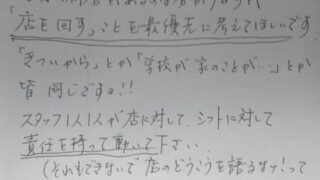 「店を回す」ことを最優先に考えてほしいです
「きついから」とか「学校が、家のことが…」とか
皆 同じですョ!!
スタッフ1人1人が店に対して、シフトに対して
責任を持って動いて下さい。
(それもできないで店のどうこうを語るな!って